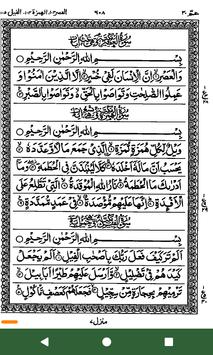 عمّ ٣٠ ٦٠٨ العصر ١٠٣ الهمزة ١٠٤ الفيل ١٠٥
بِسْمِ اللهِ الرَّحْمٰنِ الرَّحِيْمِ
وَالْعَصْرِ ۙ اِنَّ الْاِنْسَانَ لَفِيْ خُسْرٍ ۙ اِلَّا الَّذِيْنَ اٰمَنُوْا وَ
عَمِلُوا الصّٰلِحٰتِ وَتَوَاصَوْا بِالْحَقِّ ۙ وَتَوَاصَوْا بِالصَّبْرِ
بِسْمِ اللهِ الرَّحْمٰنِ الرَّحِيْمِ
وَيْلٌ لِّكُلِّ هُمَزَةٍ لُّمَزَةِ ۙ الَّذِيْ جَمَعَ مَالًا وَّعَدَّدَهٗ
يَحْسَبُ اَنَّ مَالَهٗٓ اَخْلَدَهٗ ۚ كَلَّا لَيُنْۢبَذَنَّ فِي الْحُطَمَةِ ۖ وَمَآ
اَدْرٰىكَ مَا الْحُطَمَةُ ۗ نَارُ اللهِ الْمُوْقَدَةُ ۙ الَّتِيْ تَطَّلِعُ عَلَى
الْاَفْـِٕدَةِ ۗ اِنَّهَا عَلَيْهِمْ مُّؤْصَدَةٌ ۙ فِيْ عَمَدٍ مُّمَدَّدَةٍ
بِسْمِ اللهِ الرَّحْمٰنِ الرَّحِيْمِ
اَلَمْ تَرَ كَيْفَ فَعَلَ رَبُّكَ بِاَصْحٰبِ الْفِيْلِ ۗ اَلَمْ يَجْعَلْ
كَيْدَهُمْ فِيْ تَضْلِيْلٍ ۙ وَّاَرْسَلَ عَلَيْهِمْ طَيْرًا اَبَابِيْلَ
تَرْمِيْهِمْ بِحِجَارَةٍ مِّنْ سِجِّيْلٍ ۙ فَجَعَلَهُمْ كَعَصْفٍ مَّاْكُوْلٍ
منزل ٧